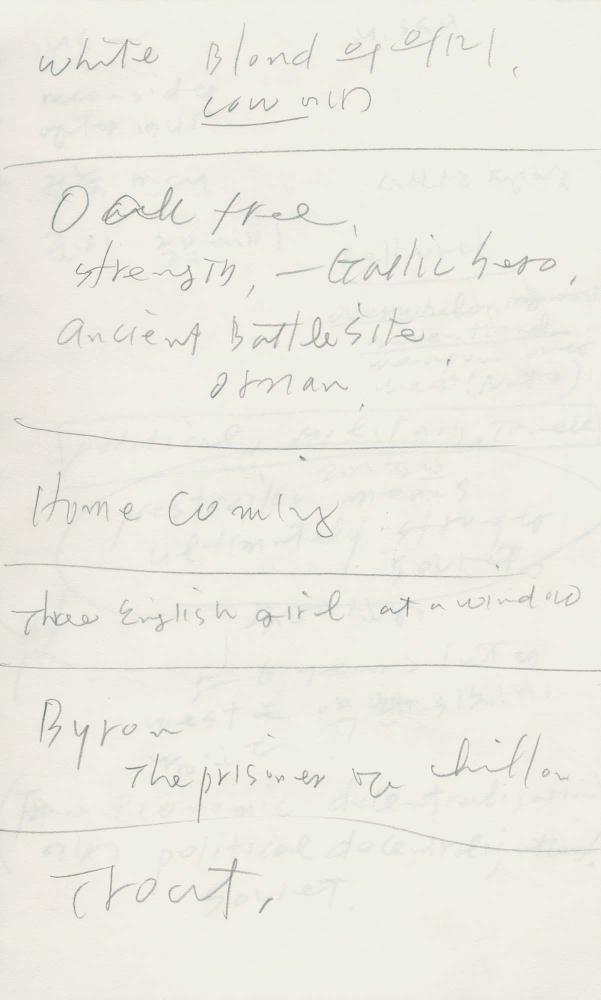 white Blond의 의미,
cow 에
Oak tree,
strength, — Gaelic hero,
ancient Battle Site
Home Coming
Three English girl at a window
Byron
The prisoner of chillon
Trout,